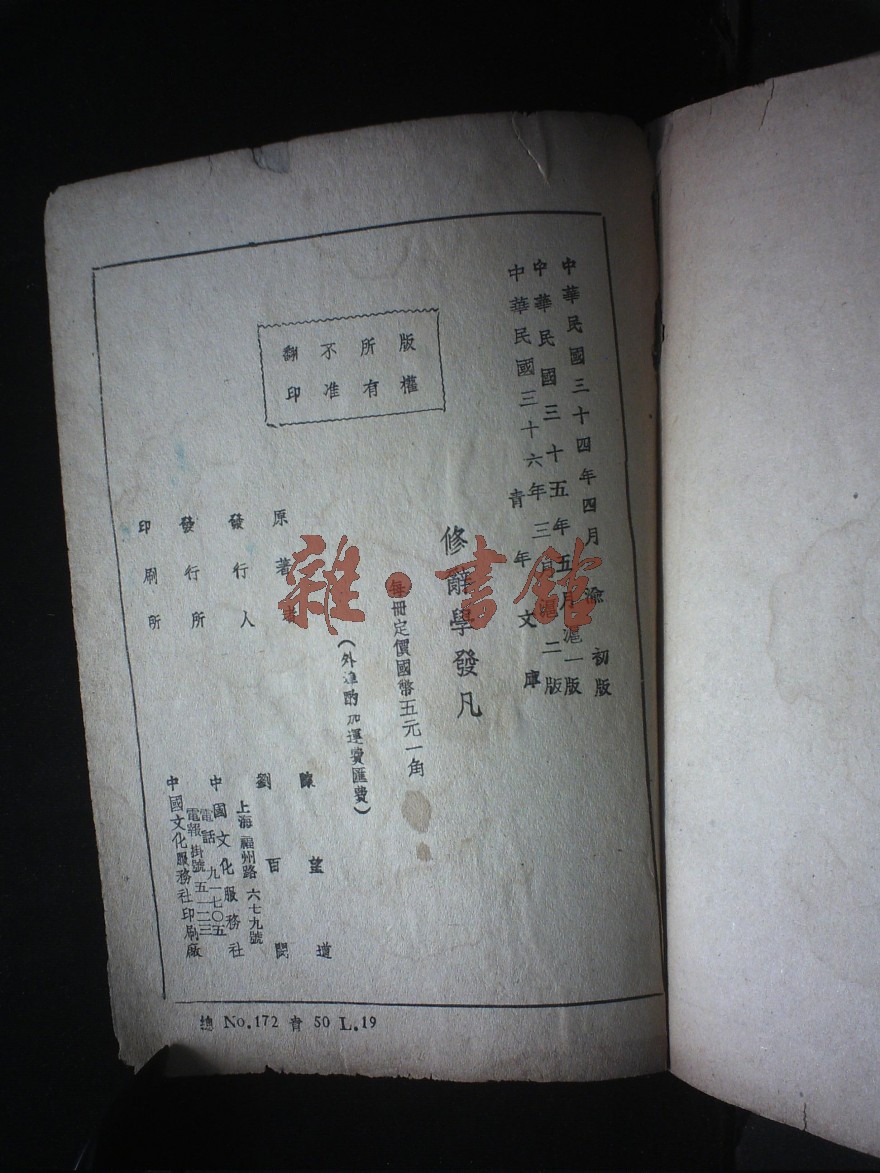 中華民國三十四年四月渝初版
中華民國三十五年五月滬一版
中華民國三十六年三月滬二版
青年文庫
修辭學發凡
每冊定價國幣五元一角
(外埠酌加運費匯費)
版權
所有
不准
翻印
原著者 陳望道
發行人 劉百閔
發行所 中國文化服務社
上海福州路六七九號
電話 九一七〇五
電報掛號五一二三
印刷所 中國文化服務社印刷廠
總 No.172 青 50 L.19
雜·書館